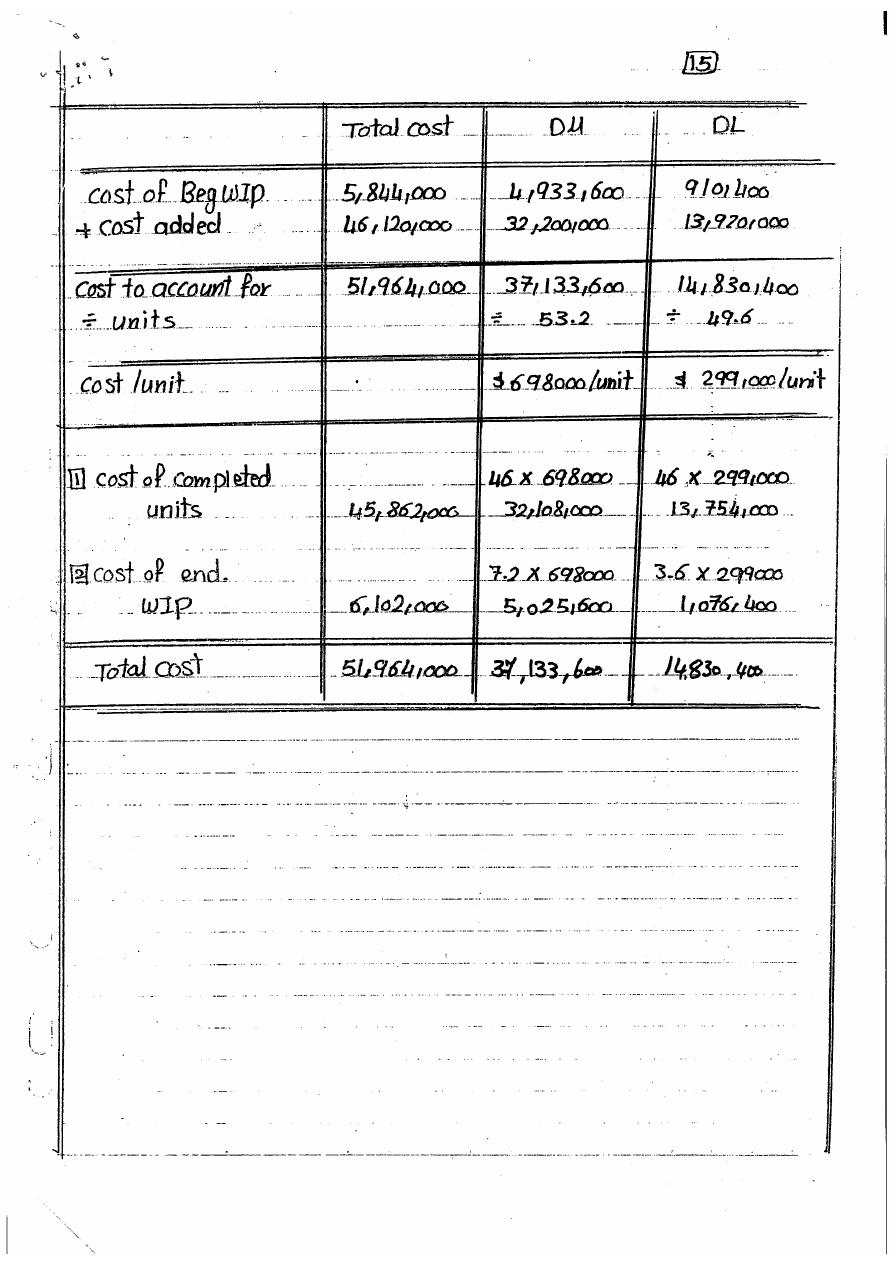 15
Total cost DM DL
cost of Beg WIP 5,844,000 4,933,600 910,400
+ cost added 46,120,000 32,200,000 13,920,000
cost to account for 51,964,000 37,133,600 14,830,400
÷ units ÷ 53.2 ÷ 49.6
cost /unit $ 698000/unit $ 299,000/unit
1 cost of completed 46 x 698000 46 x 299,000
units 45,862,000 32,108,000 13,754,000
2 cost of end. 7.2 x 698000 3.6 x 299000
WIP 6,102,000 5,025,600 1,076,400
Total cost 51,964,000 37,133,600 14,830,400